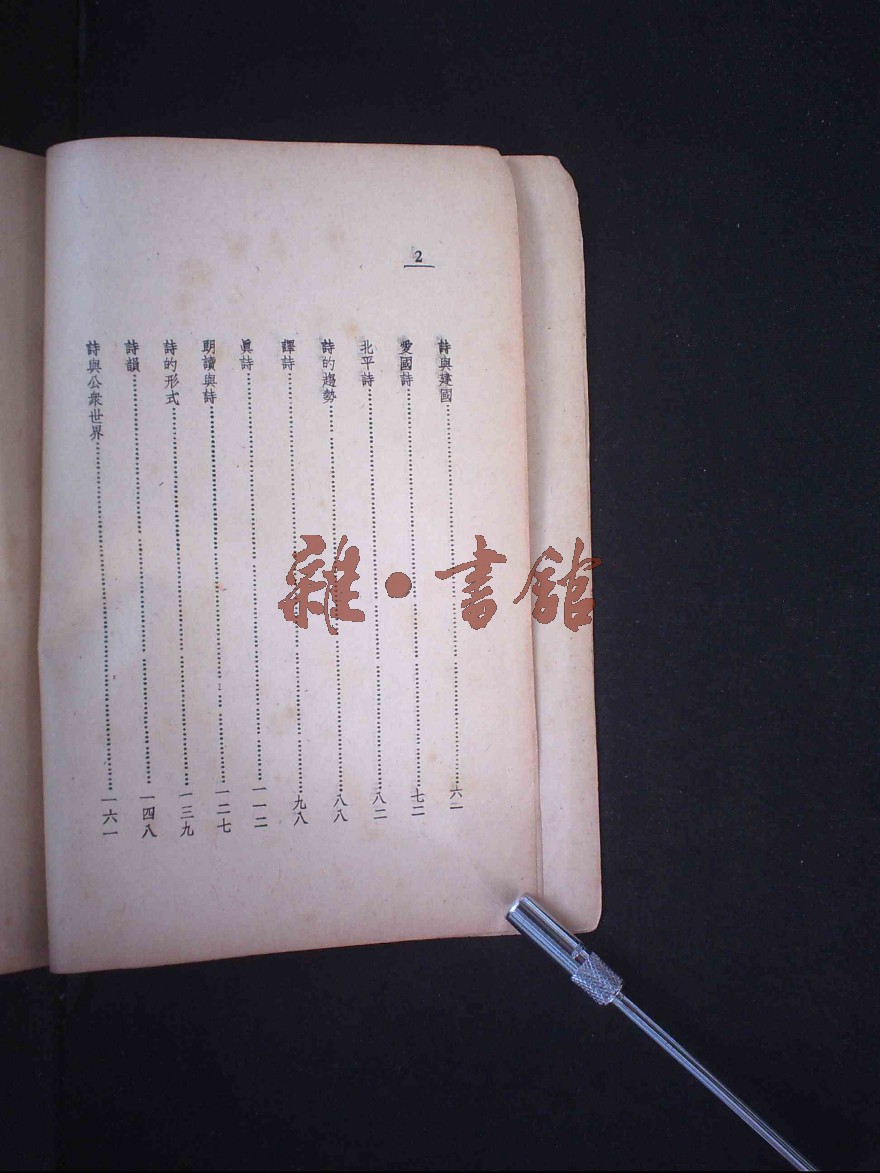 2
詩與建國……六二
愛國詩……七二
北平詩……八二
詩的趨勢……八八
譯詩……九八
眞詩……一一二
朗讀與詩……一二七
詩的形式……一三九
詩韻……一四八
詩與公衆世界……一六一
雜·書館